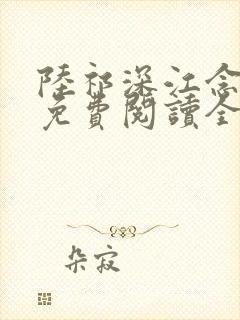 陸祁深江念
免費閱讀全
朵寂